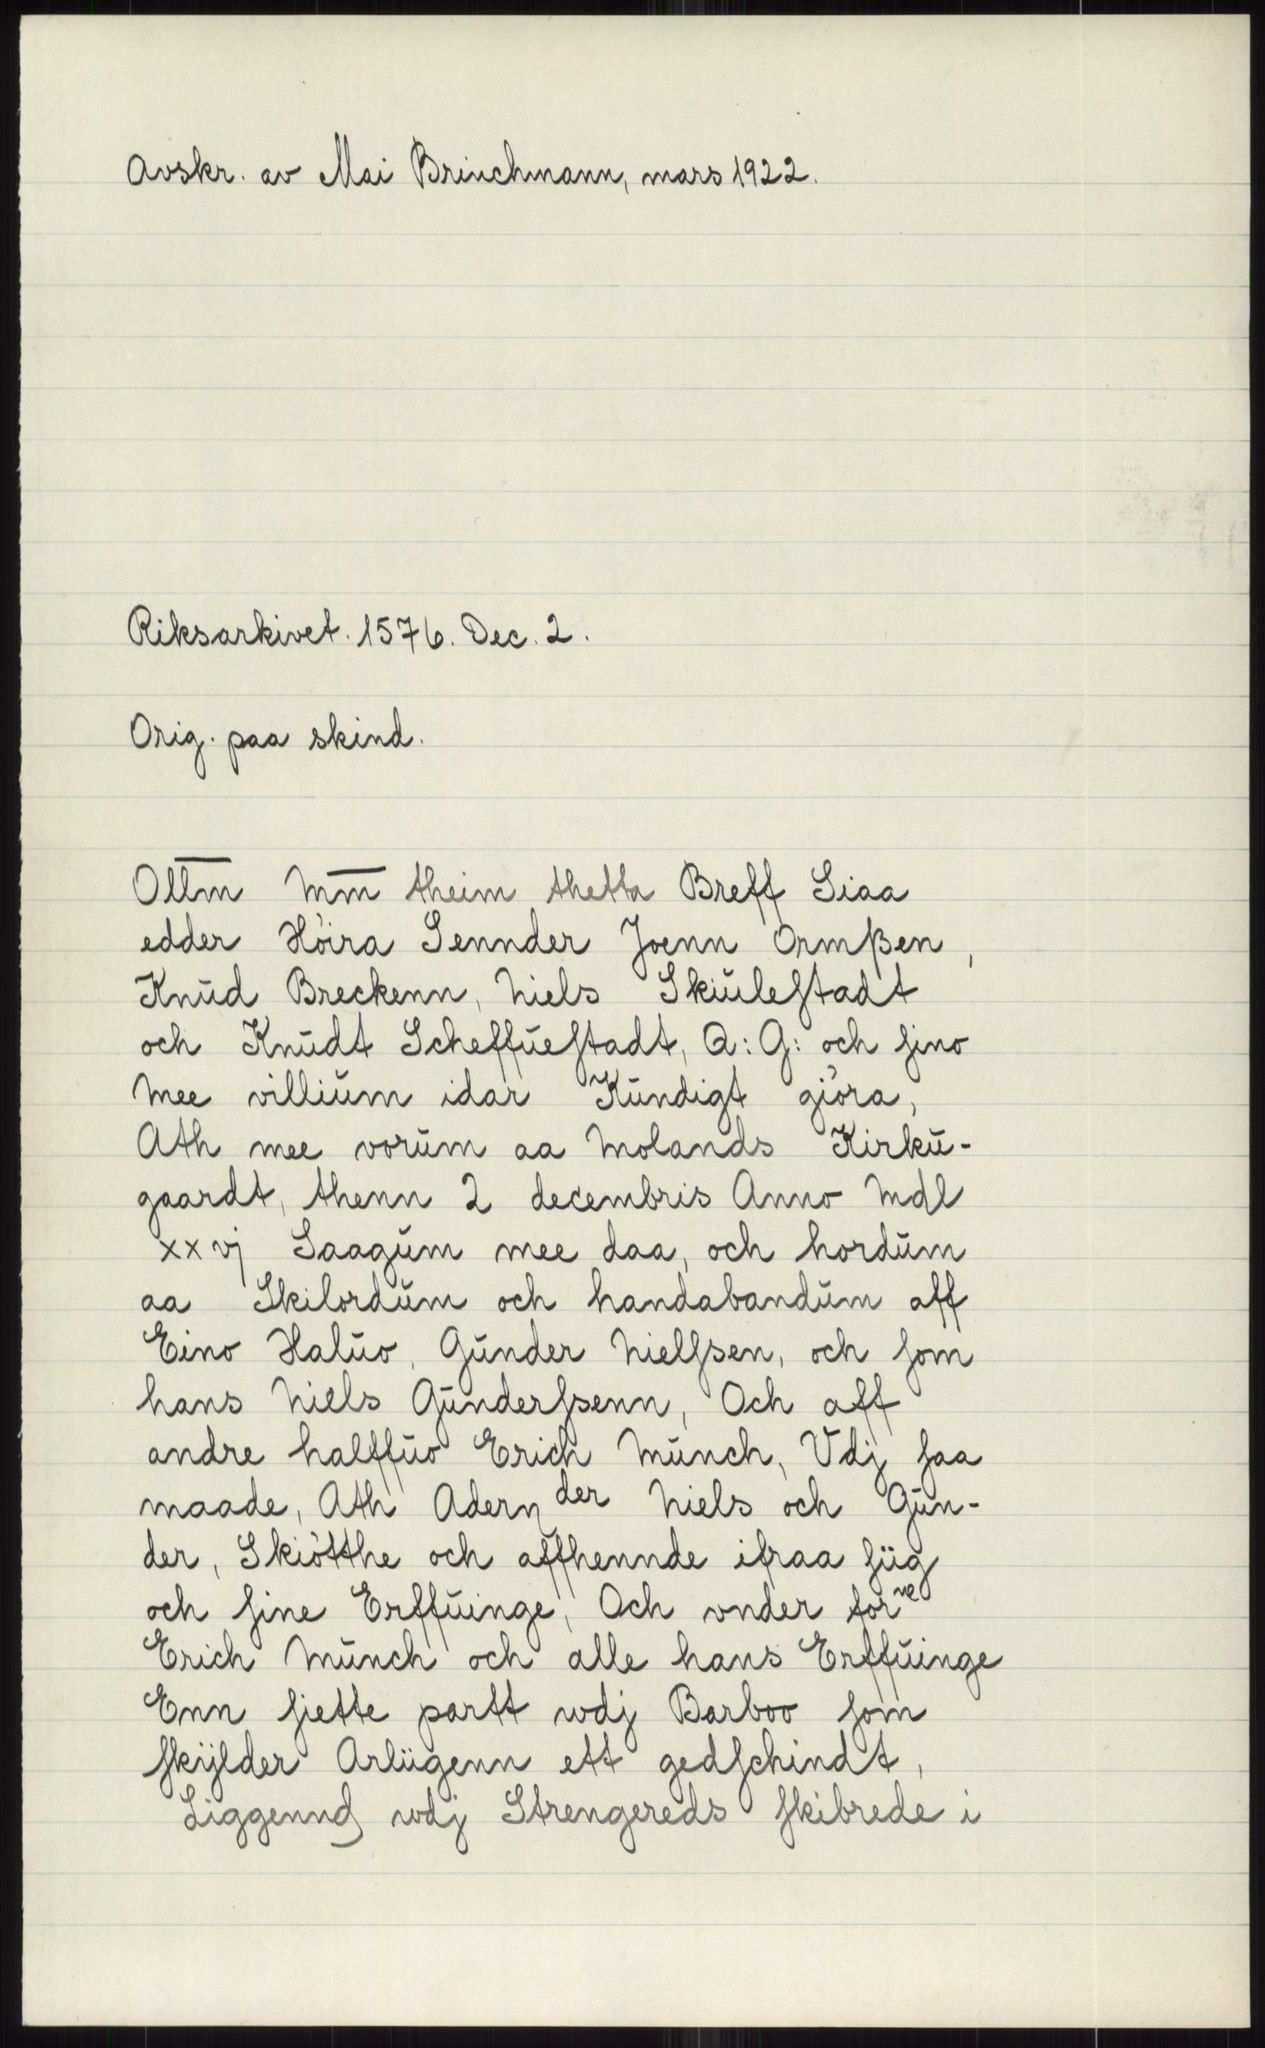 Avskr. av Mai Brinchmann, mars 1922.
Riksarkivet. 1576. Dec. 2.
Orig. paa skind.
Ollm̅ Mm̅ theim thetta Breff Siaa
edder Höira Sennder Joenn Ormßen,
Knŭd Breckenn, Niels Skiŭleſtadt
och Knŭdt Scheffŭeſtadt, Q: G: och ſino
Mee villiŭm idar Kŭndigt giöra,
Ath mee vorŭm aa Molands Kirkŭ-
gaardt, thenn 2 decembris Anno Mdl
xxvj Saagŭm mee daa, och hordŭm
aa Skilordŭm och handabandŭm aff
Eino Halŭo, Gŭnder Nielſsen, och ſom
hans Niels Gŭnderſsenn, Och aff
andre halffŭo Erich Mŭnch, Vdj ſaa
maade, Ath Adern der Niels och Gŭn-
der, Skiötthe och affhennde ifraa ſiig
och ſine Erffŭinge, Och vnder forne
Erich Mŭnch och alle hans Erffŭinge
Enn ſiette partt wdj Barboo ſom
ſkÿlder Arliigenn ett gedſchindt,
Liggennd wdj Strengereds ſkibrede i